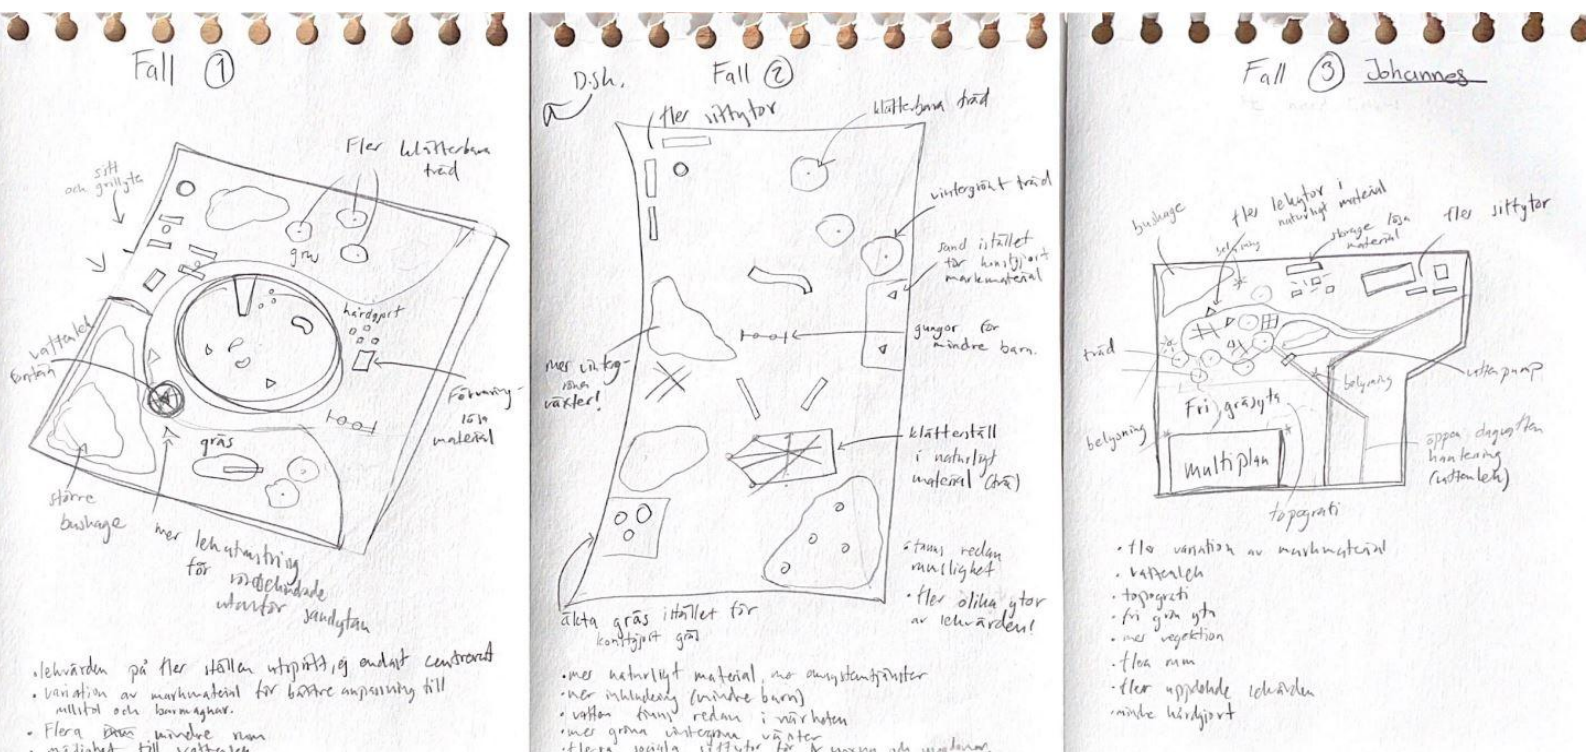 Fall ①
sitt
och grillyta
Fler klätterbara
träd
gräs
hårdgjort
vattenlek
fontän
Förvaring
lösa
material
gräs
större
buskage
mer lekutrustning
för rörelsehindrade
utanför sandytan
• lekvärden på fler ställen utspritt, ej endast centrerat
• variation av markmaterial för bättre anpassning till
rullstol och barnvagnar.
• Flera mindre rum
• möjlighet till vattenlek
D.sh.
Fall ②
fler sittytor
klätterbara träd
vintergrönt träd
sand istället
för konstgjort
markmaterial
gungor för
mindre barn.
mer vinter-
gröna
växter!
klätterställ
i naturligt
material (trä)
finns redan
rumslighet
• fler olika ytor
av lekvärden!
äkta gräs istället för
konstgjort gräs
• mer naturligt material, mer ekosystemtjänster
• mer inkludering (mindre barn)
• vatten finns redan i närheten
• mer gröna vintergröna växter
• flera sociala sittytor för vuxna och ungdomar.
Fall ③ Johannes
buskage
fler lekytor i
naturligt material
belysning
storage lösa
material
fler sittytor
träd
belysning
vattenpump
Fri gräsyta
belysning
multiplan
öppen dagvatten
hantering
(vattenlek)
topografi
• fler variation av markmaterial
• vattenlek
• topografi
• fri grön yta
• mer vegetation
• flera rum
• fler uppdelade lekvärden
• mindre hårdgjort